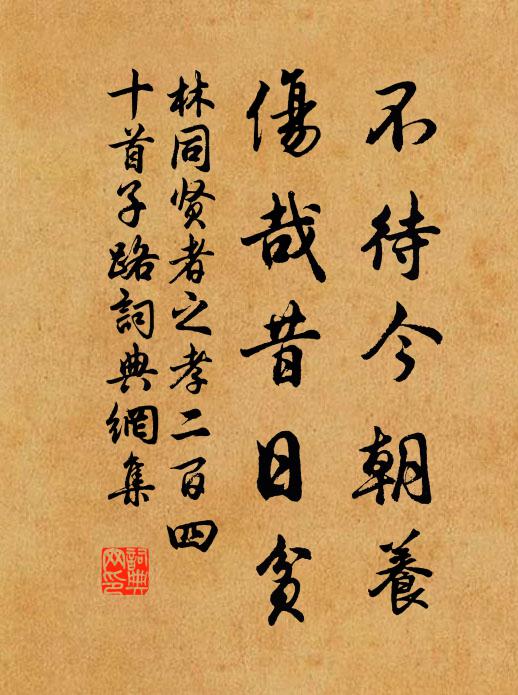 不待今朝養
傷哉昔日貧
林同賢者之孝二百四
十首子路詞典網集
詞典網印